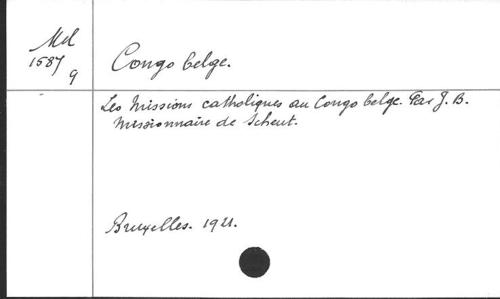 Mel
1587
9
Congo belge.
Les Missions catholiques au Congo belge. Par J. B.
Missionnaire de Scheut.
Bruxelles. 1921.